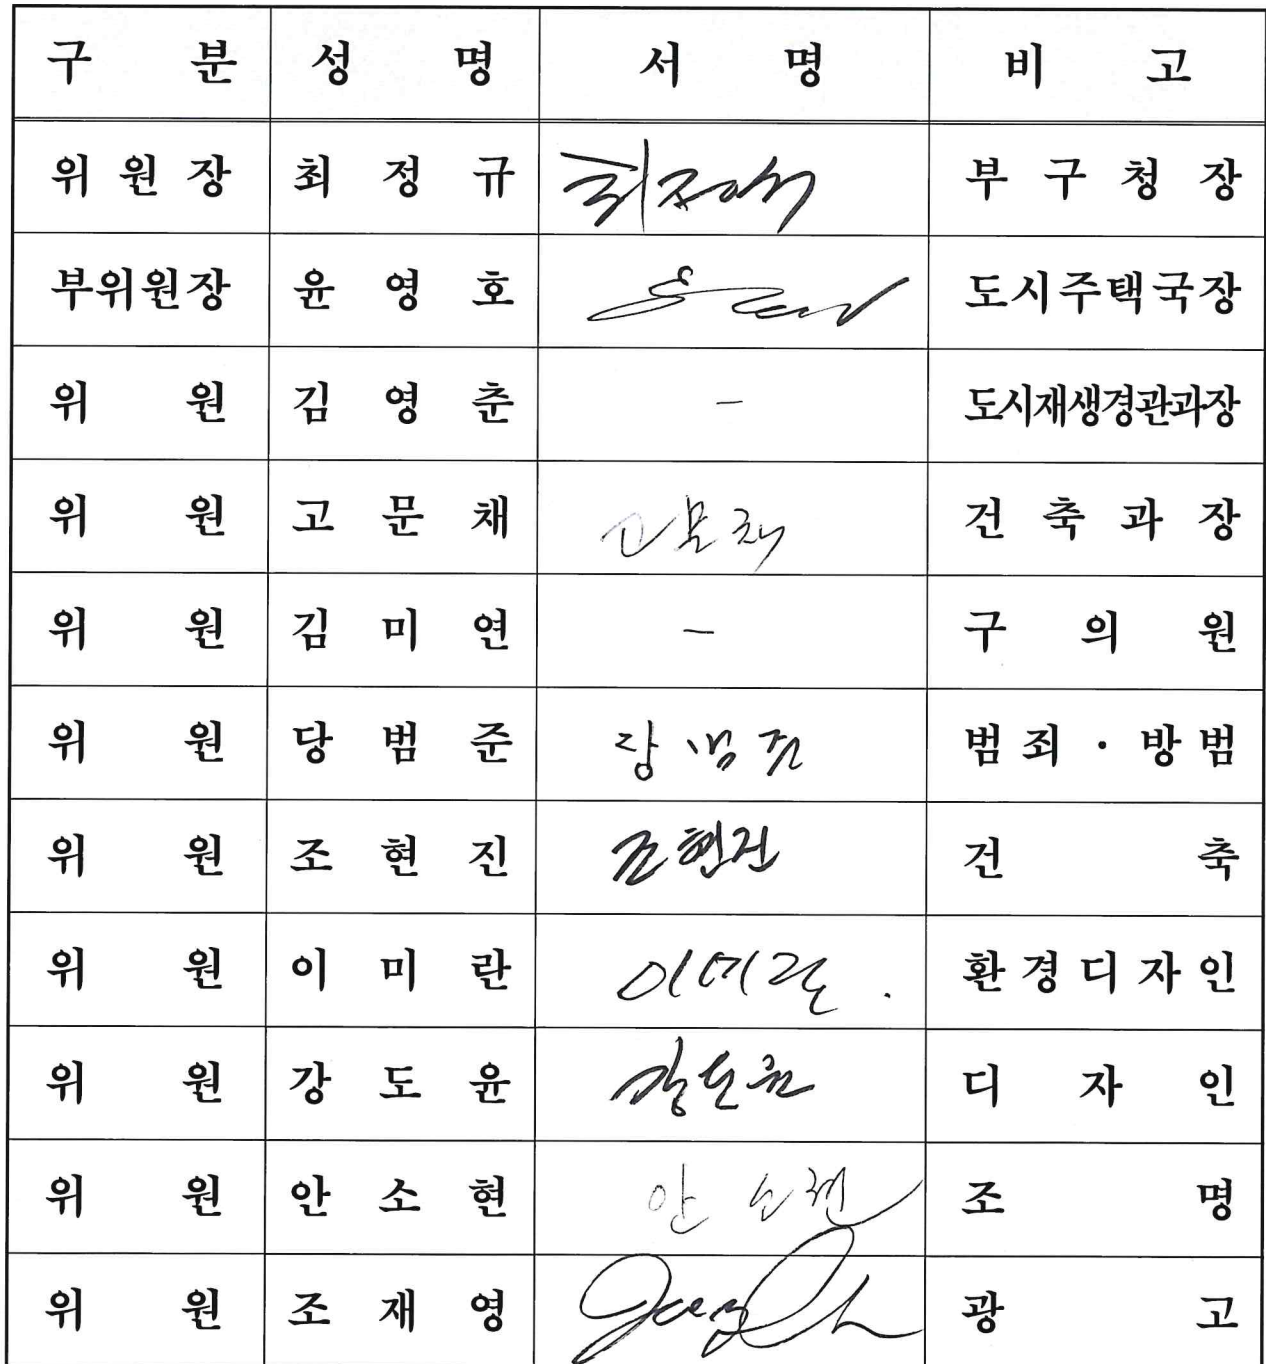 구 분 성 명 서 명 비 고
위 원 장 최 정 규 부 구 청 장
부위원장 윤 영 호 도시주택국장
위 원 김 영 춘 - 도시재생경관과장
위 원 고 문 채 고문채 건 축 과 장
위 원 김 미 연 - 구 의 원
위 원 당 범 준 당범준 범 죄 · 방 범
위 원 조 현 진 조현진 건 축
위 원 이 미 란 이미란 . 환 경 디 자 인
위 원 강 도 윤 강도윤 디 자 인
위 원 안 소 현 안 소현 조 명
위 원 조 재 영 광 고